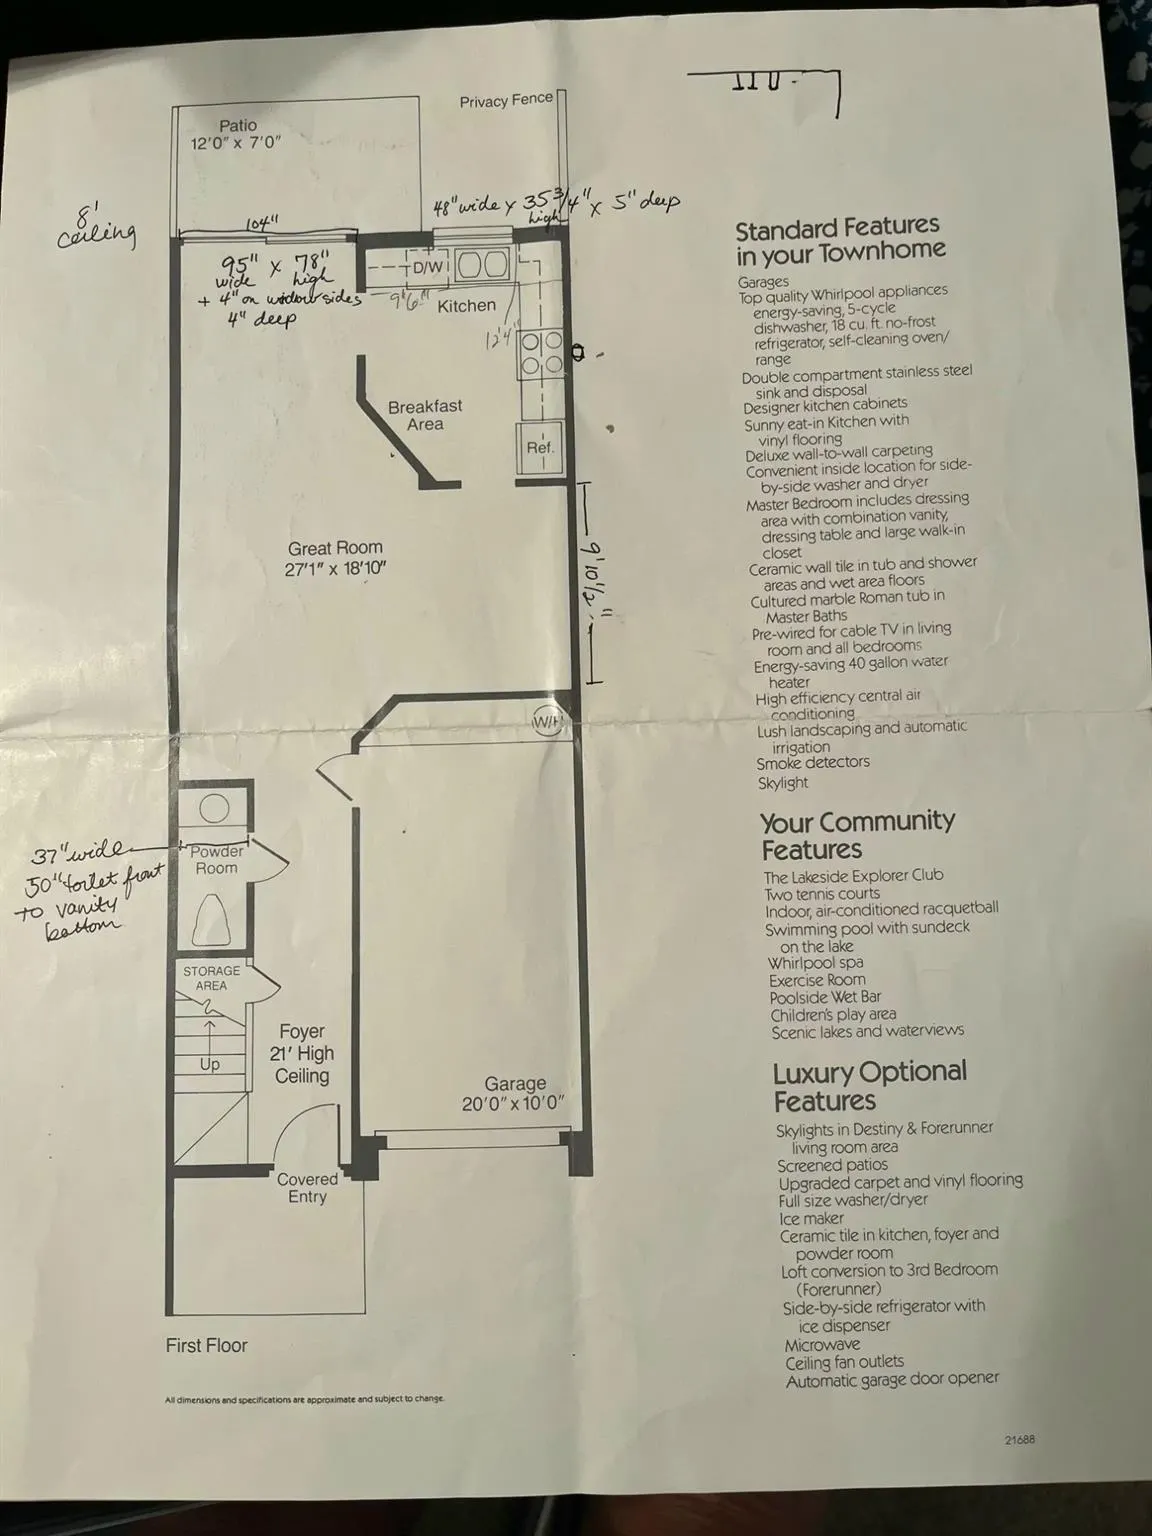 Privacy Fence
Patio
12'0" x 7'0"
8'
ceiling
104"
48" wide x 35 3/4" x 5" deep
high
95" x 78"
wide high
+ 4" on window sides
4" deep
D/W
9'6"
Kitchen
12'4"
Breakfast
Area
Ref.
Great Room
27'1" x 18'10"
9'10 1/2"
W/H
37" wide
50" toilet front
to vanity
bottom
Powder
Room
STORAGE
AREA
Up
Foyer
21' High
Ceiling
Garage
20'0" x 10'0"
Covered
Entry
First Floor
All dimensions and specifications are approximate and subject to change.
Standard Features
in your Townhome
Garages
Top quality Whirlpool appliances
energy-saving, 5-cycle
dishwasher, 18 cu. ft. no-frost
refrigerator, self-cleaning oven/
range
Double compartment stainless steel
sink and disposal
Designer kitchen cabinets
Sunny eat-in Kitchen with
vinyl flooring
Deluxe wall-to-wall carpeting
Convenient inside location for side-
by-side washer and dryer
Master Bedroom includes dressing
area with combination vanity,
dressing table and large walk-in
closet
Ceramic wall tile in tub and shower
areas and wet area floors
Cultured marble Roman tub in
Master Baths
Pre-wired for cable TV in living
room and all bedrooms
Energy-saving 40 gallon water
heater
High efficiency central air
conditioning
Lush landscaping and automatic
irrigation
Smoke detectors
Skylight
Your Community
Features
The Lakeside Explorer Club
Two tennis courts
Indoor, air-conditioned racquetball
Swimming pool with sundeck
on the lake
Whirlpool spa
Exercise Room
Poolside Wet Bar
Children's play area
Scenic lakes and waterviews
Luxury Optional
Features
Skylights in Destiny & Forerunner
living room area
Screened patios
Upgraded carpet and vinyl flooring
Full size washer/dryer
Ice maker
Ceramic tile in kitchen, foyer and
powder room
Loft conversion to 3rd Bedroom
(Forerunner)
Side-by-side refrigerator with
ice dispenser
Microwave
Ceiling fan outlets
Automatic garage door opener
21688